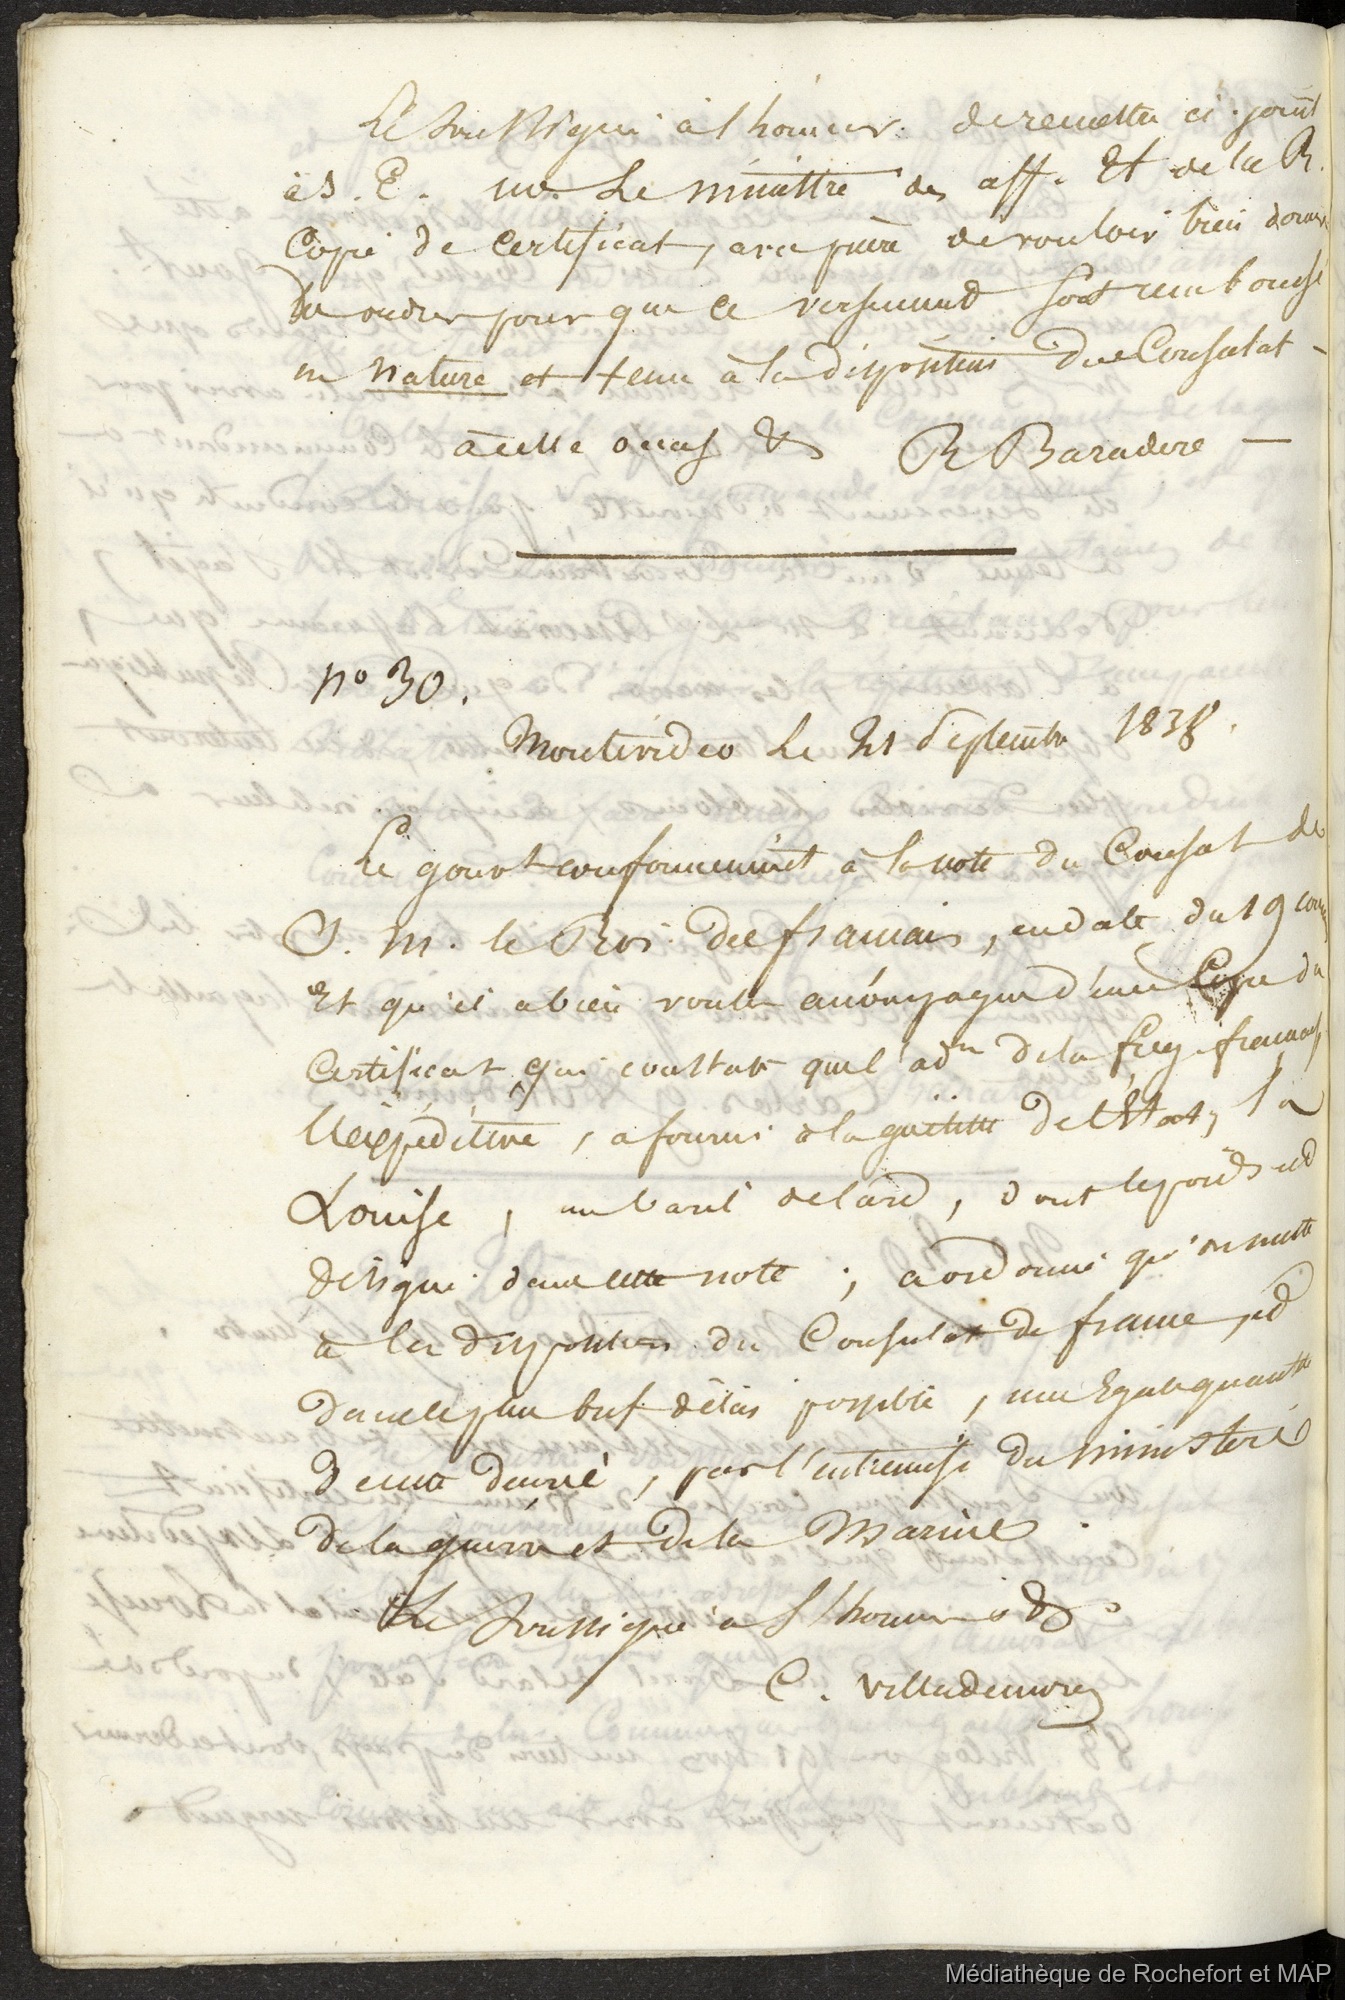 Le soussigné a l'honneur de remettre ci-joint
à S. E. mr. Le ministre des aff. Et de la R.
Copie de Certificat, avec prière de vouloir bien donner
des ordres pour que ce versement soit remboursé
en nature et tenu à la disposition du Consulat -
à cette occas &
R Baradere —
no 30.
Montévideo Le 21 Septembre 1838.
Le gouvt conformément à la note du Consat de
S. M. le Roi des français, en date du 19 cour
Et qu'il a bien voulu accompagner d'une Copie du
Certificat qui constate que l'adon de la freg. française
l'Expéditive, a fourni à la goëlette de l'Etat, la
Louise, un baril de lard, dont le poids est
désigné dans cette note ; a ordonné qu'on mette
à la disposition du Consulat de france, et
dans le plus bref délai possible, une Egale quantité
de cette denrée, par l'entremise du ministère
de la guerre et de la Marine.
Le Soussigné a l'honneur &
C. Villademoros
Médiathèque de Rochefort et MAP